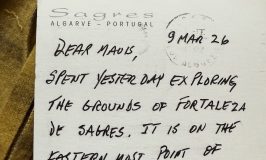 Sagres
ALGARVE - PORTUGAL
DEAR MAUD,
9 MAR 26
SPENT YESTERDAY EXPLORING
THE GROUNDS OF FORTALEZA
DE SAGRES. IT IS ON THE
EASTERN MOST POINT OF